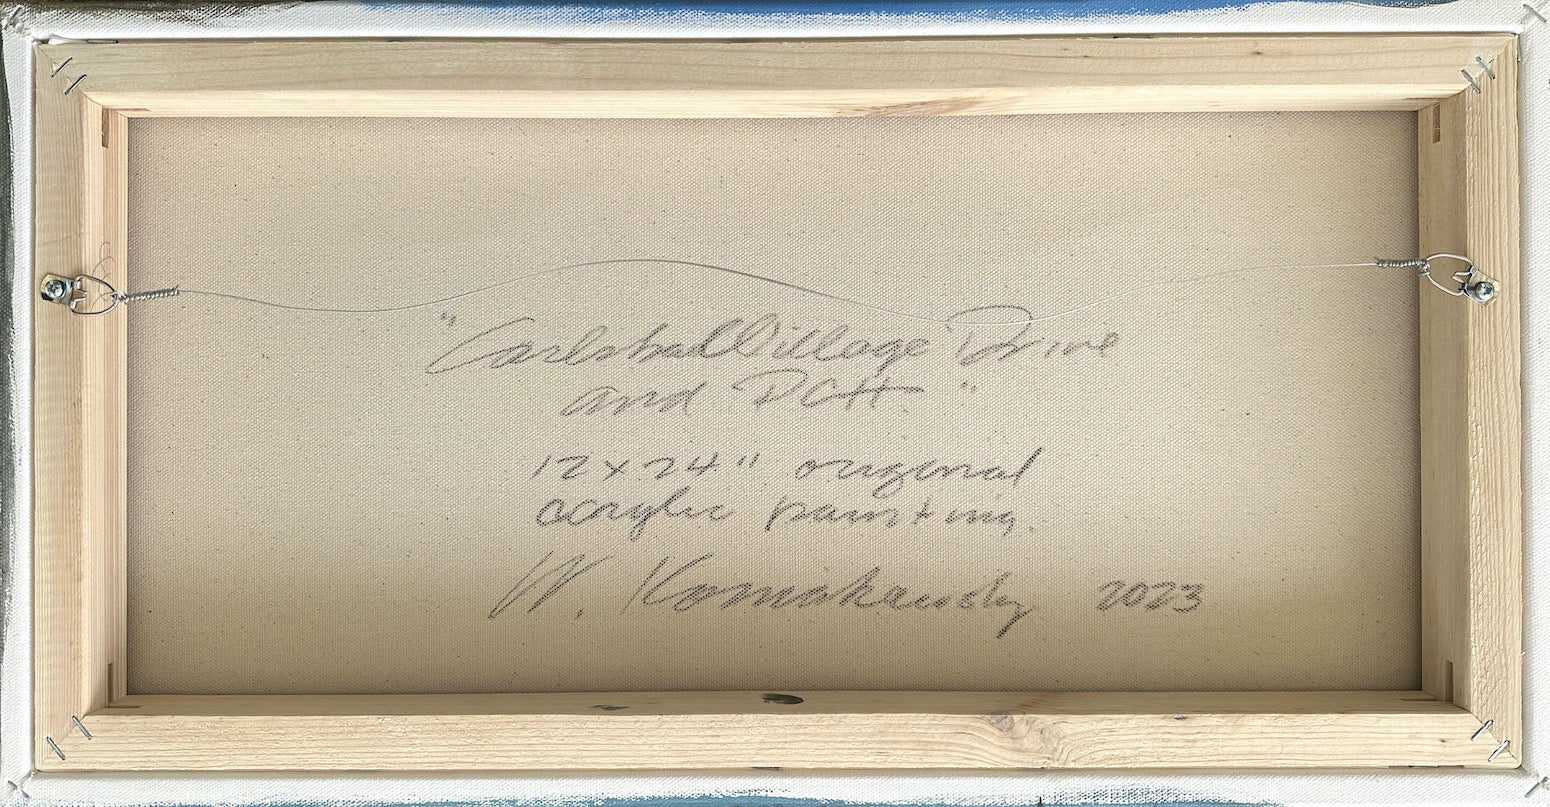 "Carlsbad Village Drive
and PCH."
12x24" original
acrylic painting.
W. Komakawsky 2023